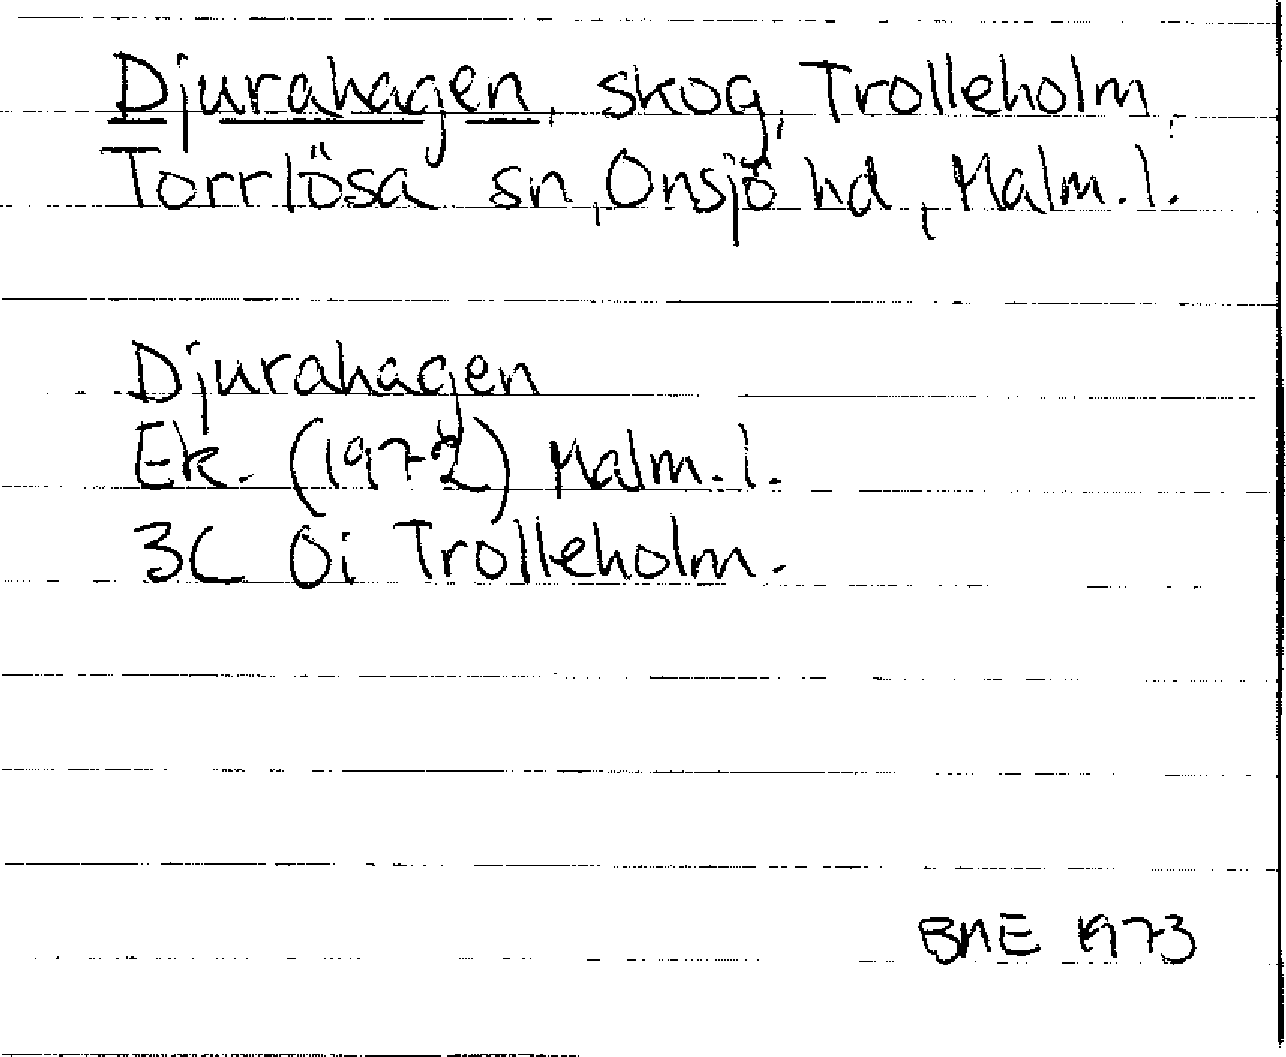 Djurahagen, skog, Trolleholm,
Torrlösa sn, Onsjö hd, Malm.l.
Djurahagen
Ek. (1972) Malm.l.
3C 0i Trolleholm.
BME 1973